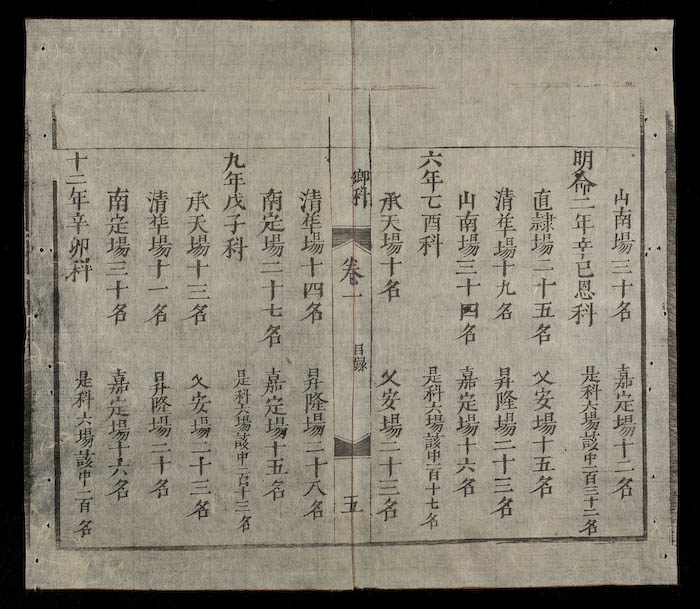 山南場三十名　嘉定場十二名
明命二年辛巳恩科　是科六場該中一百三十二名
直隷場二十五名　乂安場十五名
清華場十九名　昇隆場二十三名
山南場三十四名　嘉定場十六名
六年乙酉科　是科六場該中一百十七名
承天場十名　乂安場二十三名
鄉科　卷一　目錄　五
清華場十四名　昇隆場二十八名
南定場二十七名　嘉定場十五名
九年戊子科　是科六場該中一百十三名
承天場十三名　乂安場二十三名
清華場十一名　昇隆場二十名
南定場三十名　嘉定場十六名
十二年辛卯科　是科六場該中一百名